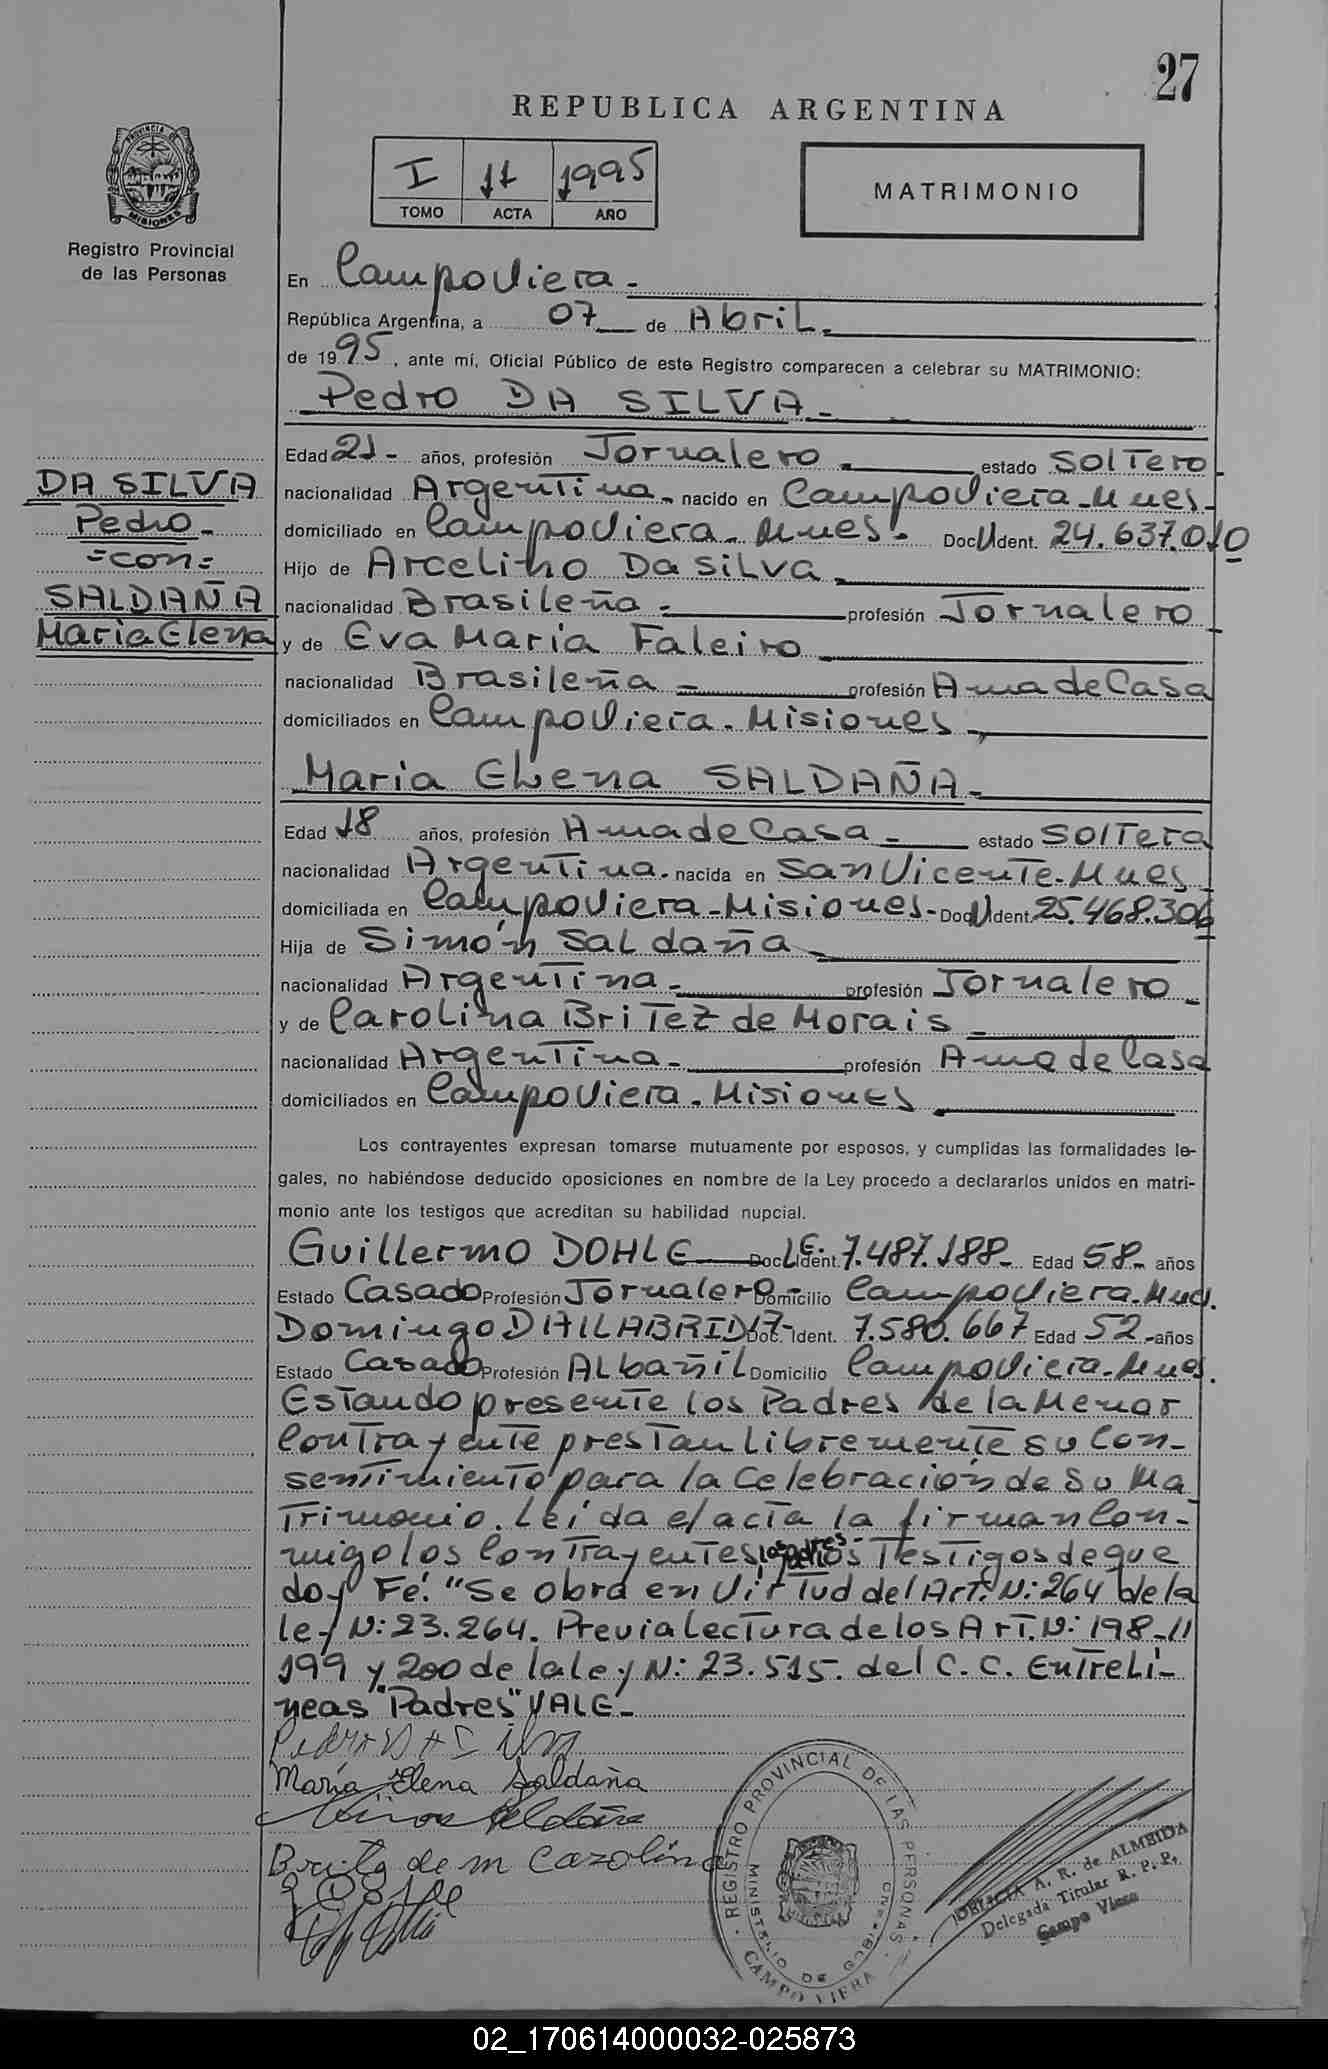 27
REPUBLICA ARGENTINA
I 11 1995
TOMO ACTA AÑO
MATRIMONIO
PROVINCIA DE MISIONES
Registro Provincial
de las Personas
En Campo Viera -
República Argentina, a 07 de Abril.
de 1995, ante mí, Oficial Público de este Registro comparecen a celebrar su MATRIMONIO:
Pedro DA SILVA -
Edad 21 - años, profesión Jornalero - estado Soltero
nacionalidad Argentina - nacido en Campo Viera - Mnes -
domiciliado en Campo Viera - Mnes - Doc U Ident. 24.637.010
Hijo de Arcelino Da Silva
nacionalidad Brasileña - profesión Jornalero
y de Eva Maria Faleiro
nacionalidad Brasileña - profesión Ama de Casa
domiciliados en Campo Viera - Misiones -
DA SILVA
Pedro -
=con=
SALDAÑA
Maria Elena
Maria Elena SALDAÑA -
Edad 18 años, profesión Ama de Casa - estado Soltera
nacionalidad Argentina - nacida en San Vicente - Mnes
domiciliada en Campo Viera - Misiones - Doc U Ident. 25.468.306
Hija de Simón Saldaña
nacionalidad Argentina - profesión Jornalero -
y de Carolina Britez de Morais -
nacionalidad Argentina - profesión Ama de Casa
domiciliados en Campo Viera - Misiones
Los contrayentes expresan tomarse mutuamente por esposos, y cumplidas las formalidades le-
gales, no habiéndose deducido oposiciones en nombre de la Ley procedo a declararlos unidos en matri-
monio ante los testigos que acreditan su habilidad nupcial.
Guillermo DOHLE Doc L.E. Ident. 7.487.188 - Edad 58 - años
Estado Casado Profesión Jornalero - Domicilio Campo Viera - Mnes.
Domingo DAILABRIDA - Doc. Ident. 7.580.667 Edad 52 - años
Estado Casado Profesión Albañil Domicilio Campo Viera - Mnes.
Estando presente los Padres de la Menor
Contrayente prestan libremente su Con-
sentimiento para la Celebración de su Ma
trimonio. Leída el acta la firman Con-
migo los Contrayentes, los padres - Testigos de que
doy Fé. "Se obra en Virtud del Art. N: 264 de la
ley N: 23.264. Previa Lectura de los Art. N: 198-//
199 y 200 de la ley N: 23.515. del C. C. Entreli-
neas "Padres" VALE -
Pedro DA Silva
María Elena Saldaña
Saldaña
de m Carolina
REGISTRO PROVINCIAL DE LAS PERSONAS
MINISTERIO DE GOBIERNO
CAMPO VIERA
A. R. de ALMEIDA
Delegada Titular R. P. P.
Campo Viera
02_170614000032-025873